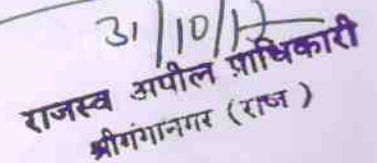 31/10/17
राजस्व अपील प्राधिकारी
श्रीगंगानगर (राज )